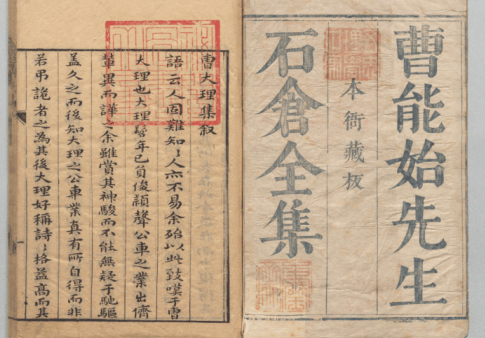 曹能始先生
本衙藏板
石倉全集
曹大理集叙
語云人固難知〻人亦不易余殆以此致嘆于曹
大理也大理髫年已負俊穎聲公車之業出儕
輩異而譁之余雖賞其神駿而不能無疑于馳驅
蓋久之而後知大理之公車業真有所自得而非
若弔詭者之為其後大理好稱詩〻格益高而其